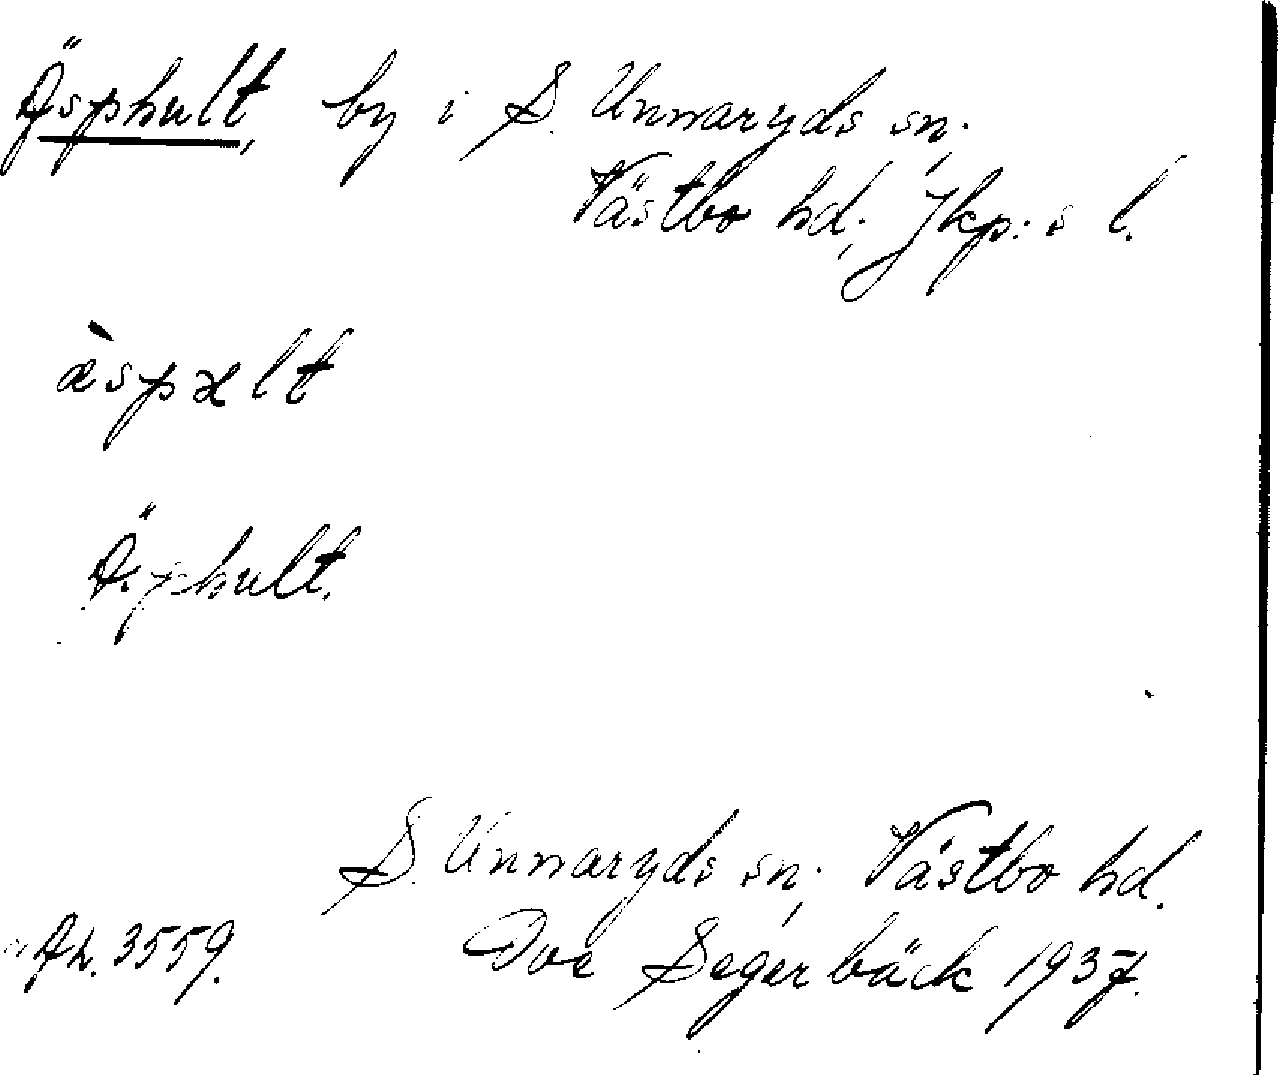 Äsphult, by i S. Unnaryds sn.,
Västbo hd., Jkp:s l.
æ̀spælt
Äsphult.
S. Unnaryds sn., Västbo hd.
Ove Segerbäck 1937.
3559.